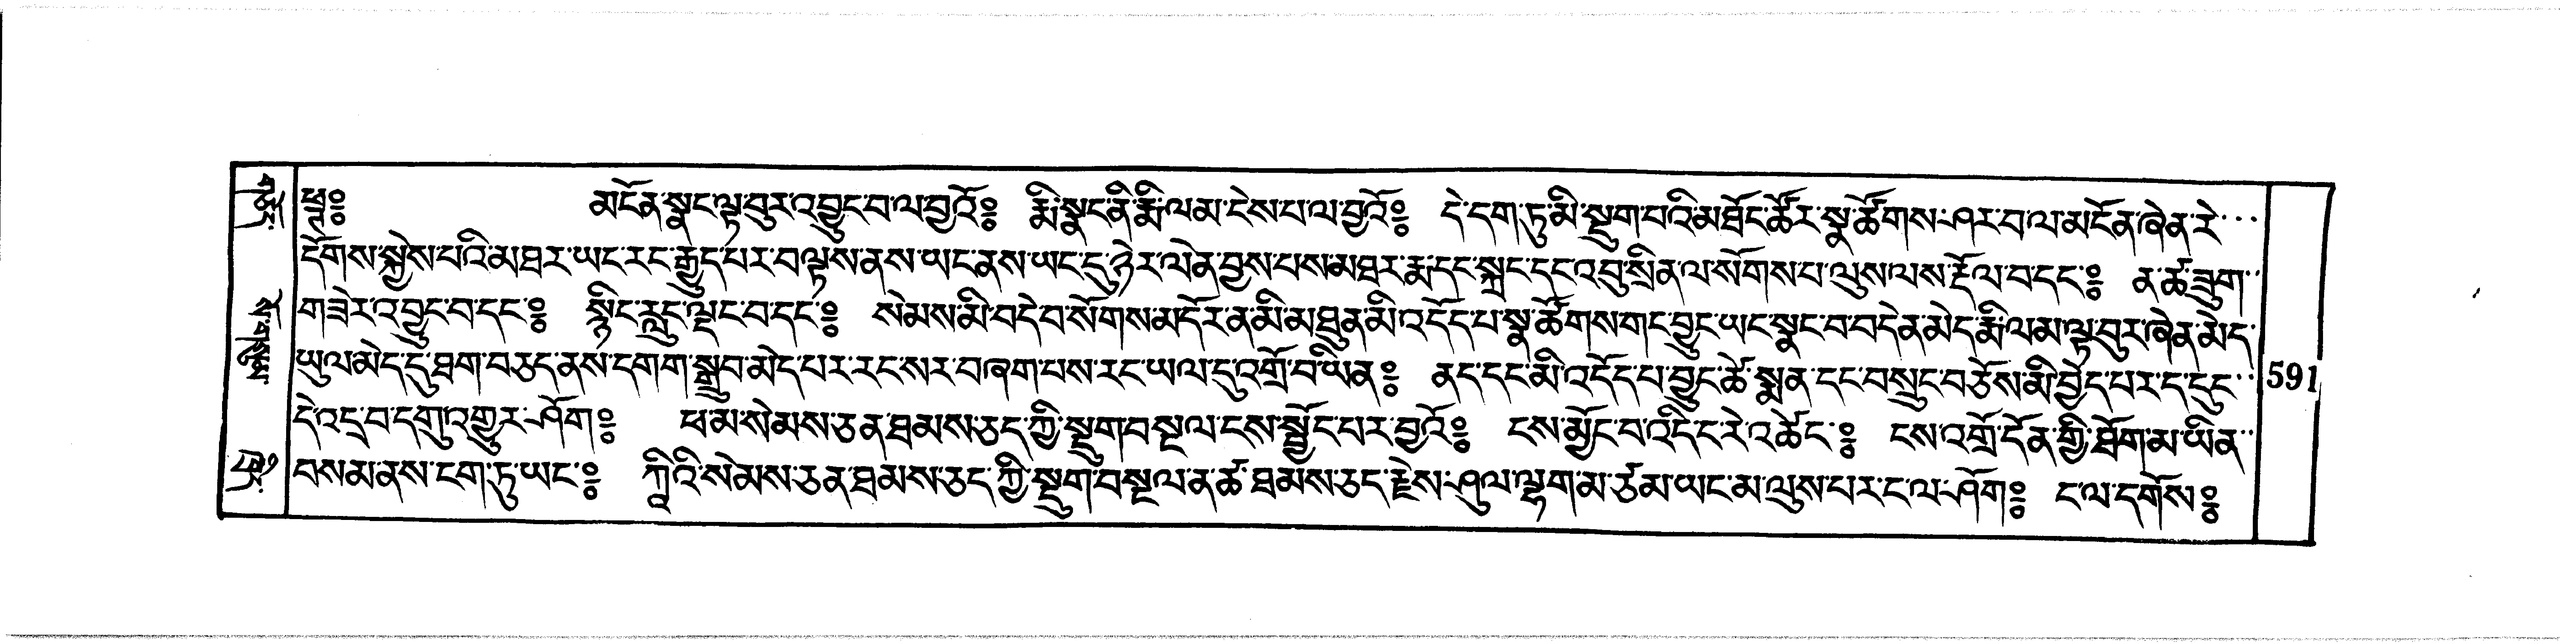 ཕྲ༔ མངོན་སྣང་ལྟ་བུར་འབྱུང་བ་ལ་བྱའོ༔ རྨི་སྣང་ནི་རྨི་ལམ་ངེས་པ་ལ་བྱའོ༔ དེ་དག་ཏུ་མི་སྡུག་པའི་མཐོང་ཚོར་སྣ་ཚོགས་ཤར་བ་ལ་མངོན་ཞེན་རེ་
དོགས་སྐྱེས་པའི་མཐར་ཡང་རང་རྒྱུད་པར་བལྟས་ནས་ཡང་ནས་ཡང་དུ་ཉེར་ལེན་བྱས་པས་མཐར་རྨ་དང་སྐྲང་དང་འབུ་སྲིན་ལ་སོགས་པ་ལུས་ལས་རྡོལ་བ་དང་༔ ན་ཚ་ཟུག་
གཟེར་འབྱུང་བ་དང་༔ སྙིང་རླུང་ལྡང་བ་དང་༔ སེམས་མི་བདེ་བ་སོགས་མདོར་ན་མི་མཐུན་མི་འདོད་པ་སྣ་ཚོགས་གང་བྱུང་ཡང་སྣང་བ་བདེན་མེད་རྨི་ལམ་ལྟ་བུར་ཞེན་མེད་
ཡུལ་མེད་དུ་ཐག་བཅད་ནས་དགག་སྒྲུབ་མེད་པར་རང་སར་བཞག་པས་རང་ཡལ་དུ་འགྲོ་བ་ཡིན༔ ནད་དང་མི་འདོད་པ་བྱུང་ཚེ་སྨན་དང་བསྲུང་བཅོས་མི་བྱེད་པར་ད་དུང་
དེ་འདྲ་བ་དགུ་འགྱུར་ཤོག༔ ཕ་མ་སེམས་ཅན་ཐམས་ཅད་ཀྱི་སྡུག་བསྔལ་ངས་སྦྱོང་བར་བྱའོ༔ ངས་མྱོང་བ་འདི་ང་རེ་འཚེང་༔ ངས་འགྲོ་དོན་གྱི་ཐོག་མ་ཡིན་
བསམ་ནས་ངག་ཏུ་ཡང་༔ ཀྭའི་སེམས་ཅན་ཐམས་ཅད་ཀྱི་སྡུག་བསྔལ་ན་ཚ་ཐམས་ཅད་རྗེས་ཤུལ་ལྷག་མ་ཙམ་ཡང་མ་ལུས་པར་ང་ལ་ཤོག༔ ང་ལ་དགོས༔
591